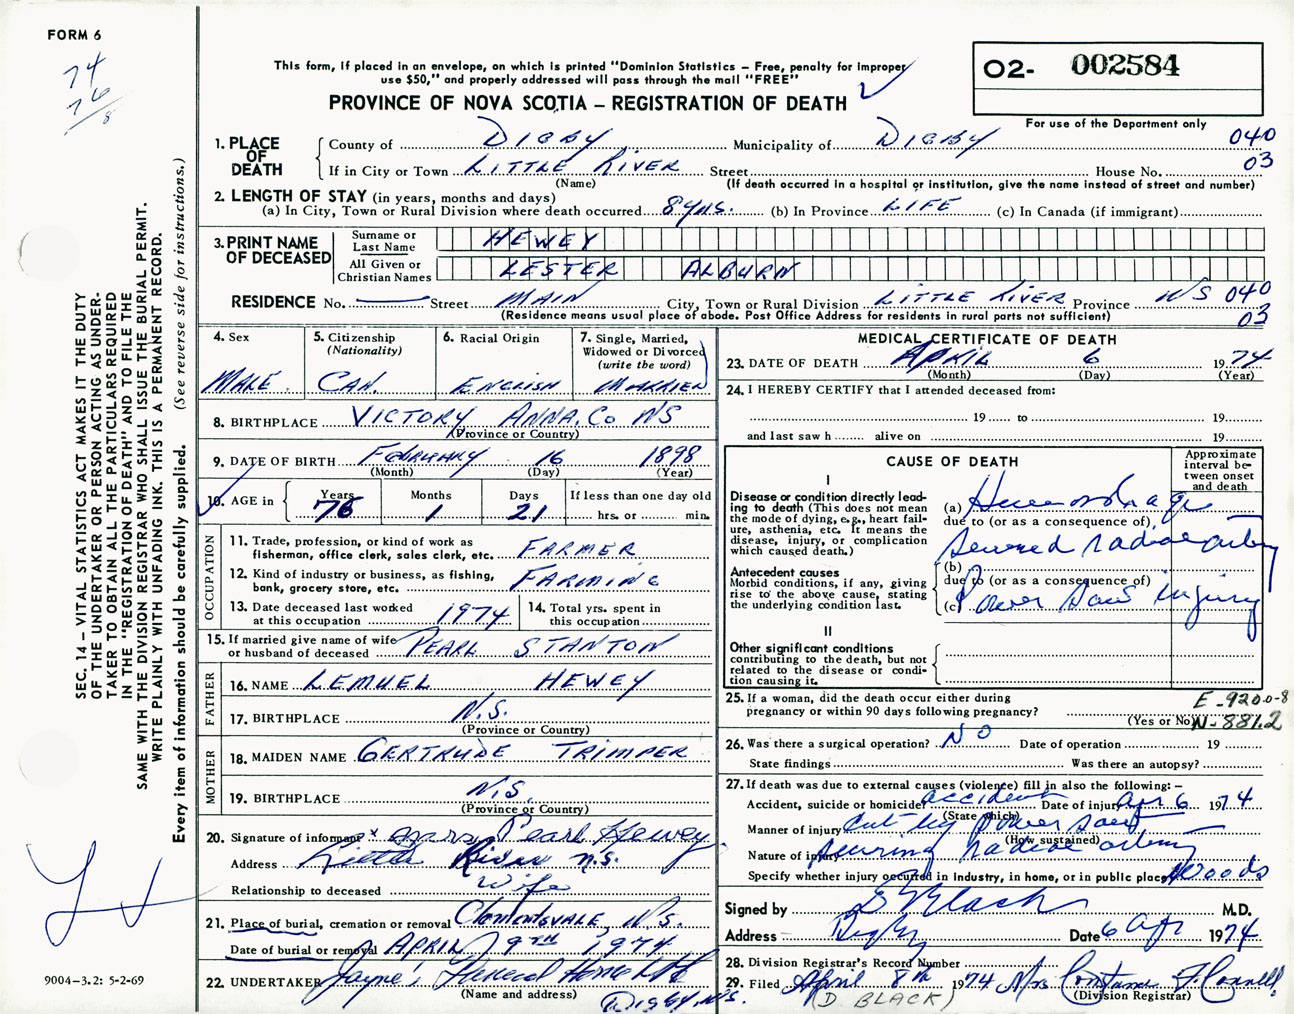 FORM 6
74
76/8
This form, if placed in an envelope, on which is printed "Dominion Statistics – Free, penalty for improper
use $50," and properly addressed will pass through the mail "FREE"
PROVINCE OF NOVA SCOTIA – REGISTRATION OF DEATH
O2- 002584
For use of the Department only
040
03
1. PLACE OF DEATH
County of DIGBY Municipality of DIGBY
If in City or Town LITTLE RIVER Street House No.
(Name) (If death occurred in a hospital or institution, give the name instead of street and number)
2. LENGTH OF STAY (in years, months and days)
(a) In City, Town or Rural Division where death occurred 8 yrs. (b) In Province LIFE (c) In Canada (if immigrant)
3. PRINT NAME OF DECEASED
Surname or Last Name HEWEY
All Given or Christian Names LESTER ALBURN
RESIDENCE No. Street MAIN City, Town or Rural Division LITTLE RIVER Province NS 040
(Residence means usual place of abode. Post Office Address for residents in rural parts not sufficient) 03
4. Sex
MALE
5. Citizenship
(Nationality)
CAN.
6. Racial Origin
ENGLISH
7. Single, Married,
Widowed or Divorced
(write the word)
MARRIED
8. BIRTHPLACE VICTORY ANNA. Co NS
(Province or Country)
9. DATE OF BIRTH FEBRUARY 16 1898
(Month) (Day) (Year)
10. AGE in
Years 76
Months 1
Days 21
If less than one day old
hrs. or min.
OCCUPATION
11. Trade, profession, or kind of work as
fisherman, office clerk, sales clerk, etc. FARMER
12. Kind of industry or business, as fishing,
bank, grocery store, etc. FARMING
13. Date deceased last worked
at this occupation 1974
14. Total yrs. spent in
this occupation
15. If married give name of wife
or husband of deceased PEARL STANTON
FATHER
16. NAME LEMUEL HEWEY
17. BIRTHPLACE N.S.
(Province or Country)
MOTHER
18. MAIDEN NAME GERTRUDE TRIMPER
19. BIRTHPLACE N.S.
(Province or Country)
20. Signature of informant x Mrs. Pearl Hewey
Address Little River N.S.
Relationship to deceased Wife
21. Place of burial, cremation or removal Clementsvale, N.S.
Date of burial or removal APRIL 9TH 1974
22. UNDERTAKER Jayne's Funeral Home Ltd
(Name and address) DIGBY, N.S.
MEDICAL CERTIFICATE OF DEATH
23. DATE OF DEATH APRIL 6 1974
(Month) (Day) (Year)
24. I HEREBY CERTIFY that I attended deceased from:
19 to 19
and last saw h alive on 19
CAUSE OF DEATH
Approximate
interval be-
tween onset
and death
I
Disease or condition directly lead-
ing to death (This does not mean
the mode of dying, e.g., heart fail-
ure, asthenia, etc. It means the
disease, injury, or complication
which caused death.)
(a) Hemorrhage
due to (or as a consequence of)
severed radial artery
(b)
due to (or as a consequence of)
(c) Power saw injury
Antecedent causes
Morbid conditions, if any, giving
rise to the above cause, stating
the underlying condition last.
II
Other significant conditions
contributing to the death, but not
related to the disease or condi-
tion causing it.
25. If a woman, did the death occur either during
pregnancy or within 90 days following pregnancy?
(Yes or No)
E-920.0-8
N-881.2
26. Was there a surgical operation? NO Date of operation 19
State findings Was there an autopsy?
27. If death was due to external causes (violence) fill in also the following: –
Accident, suicide or homicide accident Date of injury Apr 6 1974
(State which)
Manner of injury Cut by power saw
(How sustained)
Nature of injury severing radial artery
Specify whether injury occurred in industry, in home, or in public place Woods
Signed by Black M.D.
Address Digby Date 6 Apr 1974
28. Division Registrar's Record Number
29. Filed April 8th 1974 Mrs Constance F. Connell
(D. BLACK) (Division Registrar)
SEC. 14 – VITAL STATISTICS ACT MAKES IT THE DUTY
OF THE UNDERTAKER OR PERSON ACTING AS UNDER-
TAKER TO OBTAIN ALL THE PARTICULARS REQUIRED
IN THE "REGISTRATION OF DEATH" AND TO FILE THE
SAME WITH THE DIVISION REGISTRAR WHO SHALL ISSUE THE BURIAL PERMIT.
WRITE PLAINLY WITH UNFADING INK. THIS IS A PERMANENT RECORD.
Every item of information should be carefully supplied. (See reverse side for instructions.)
9004–3.2: 5-2-69